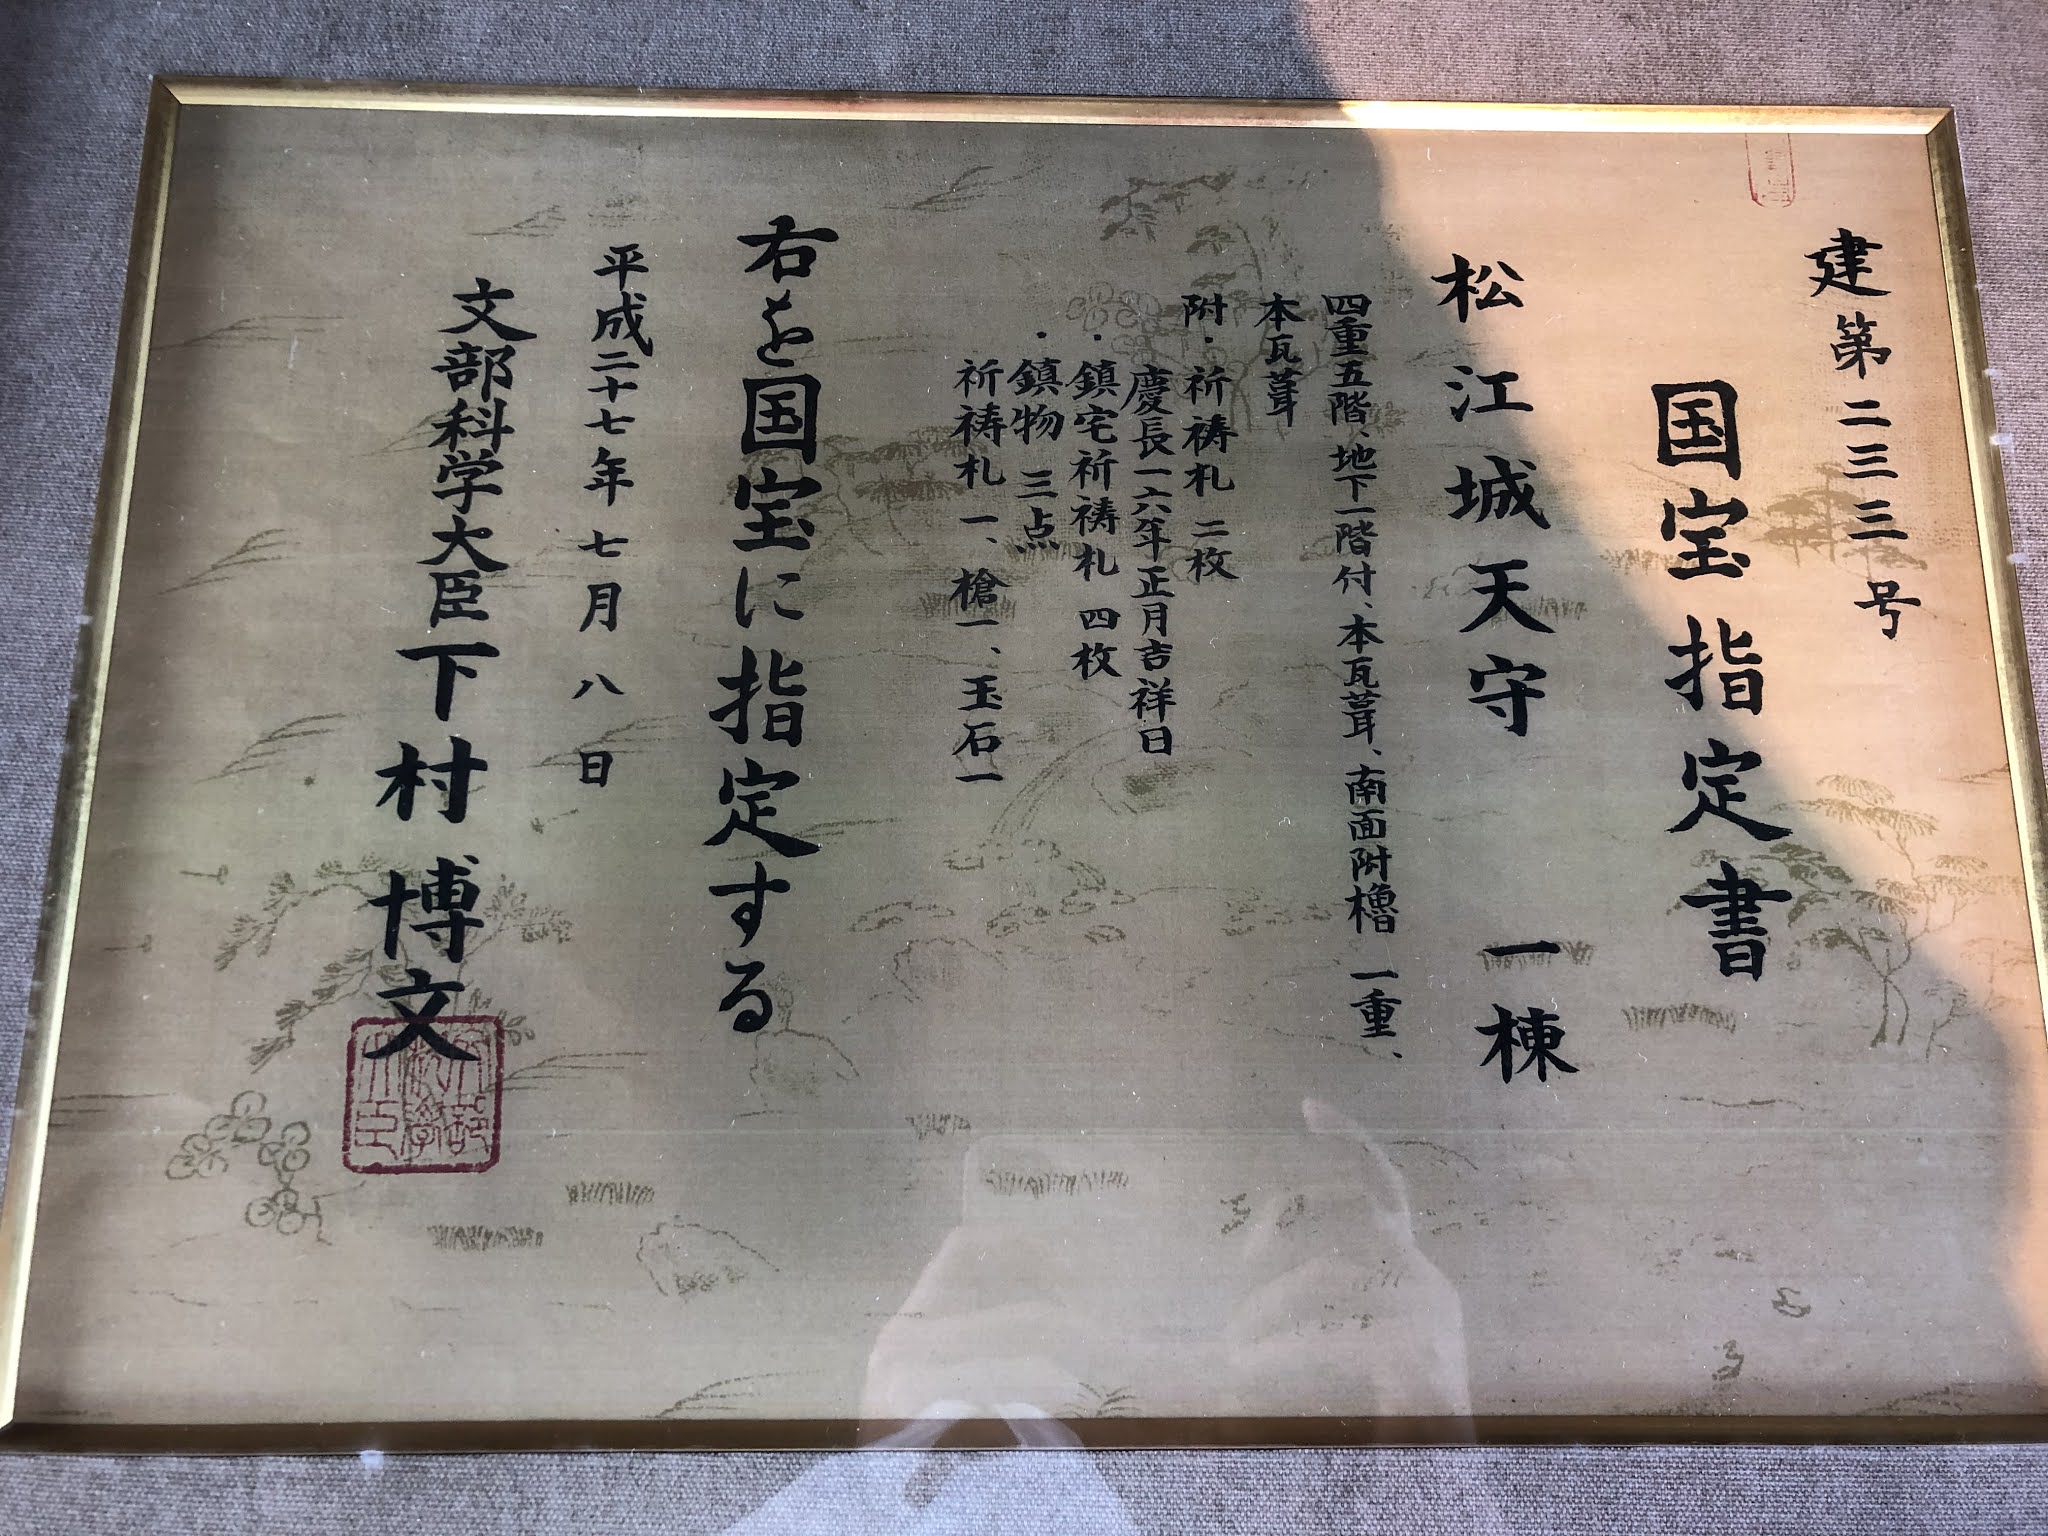 建第二三三号
国宝指定書
松江城天守 一棟
四重五階、地下一階付、本瓦葺、南面附櫓 一重、
本瓦葺
附・祈祷札 二枚
慶長一六年正月吉祥日
・鎮宅祈祷札 四枚
・鎮物 三点
祈祷札一、槍一、玉石一
右を国宝に指定する
平成二十七年七月八日
文部科学大臣下村博文
文部科学大臣